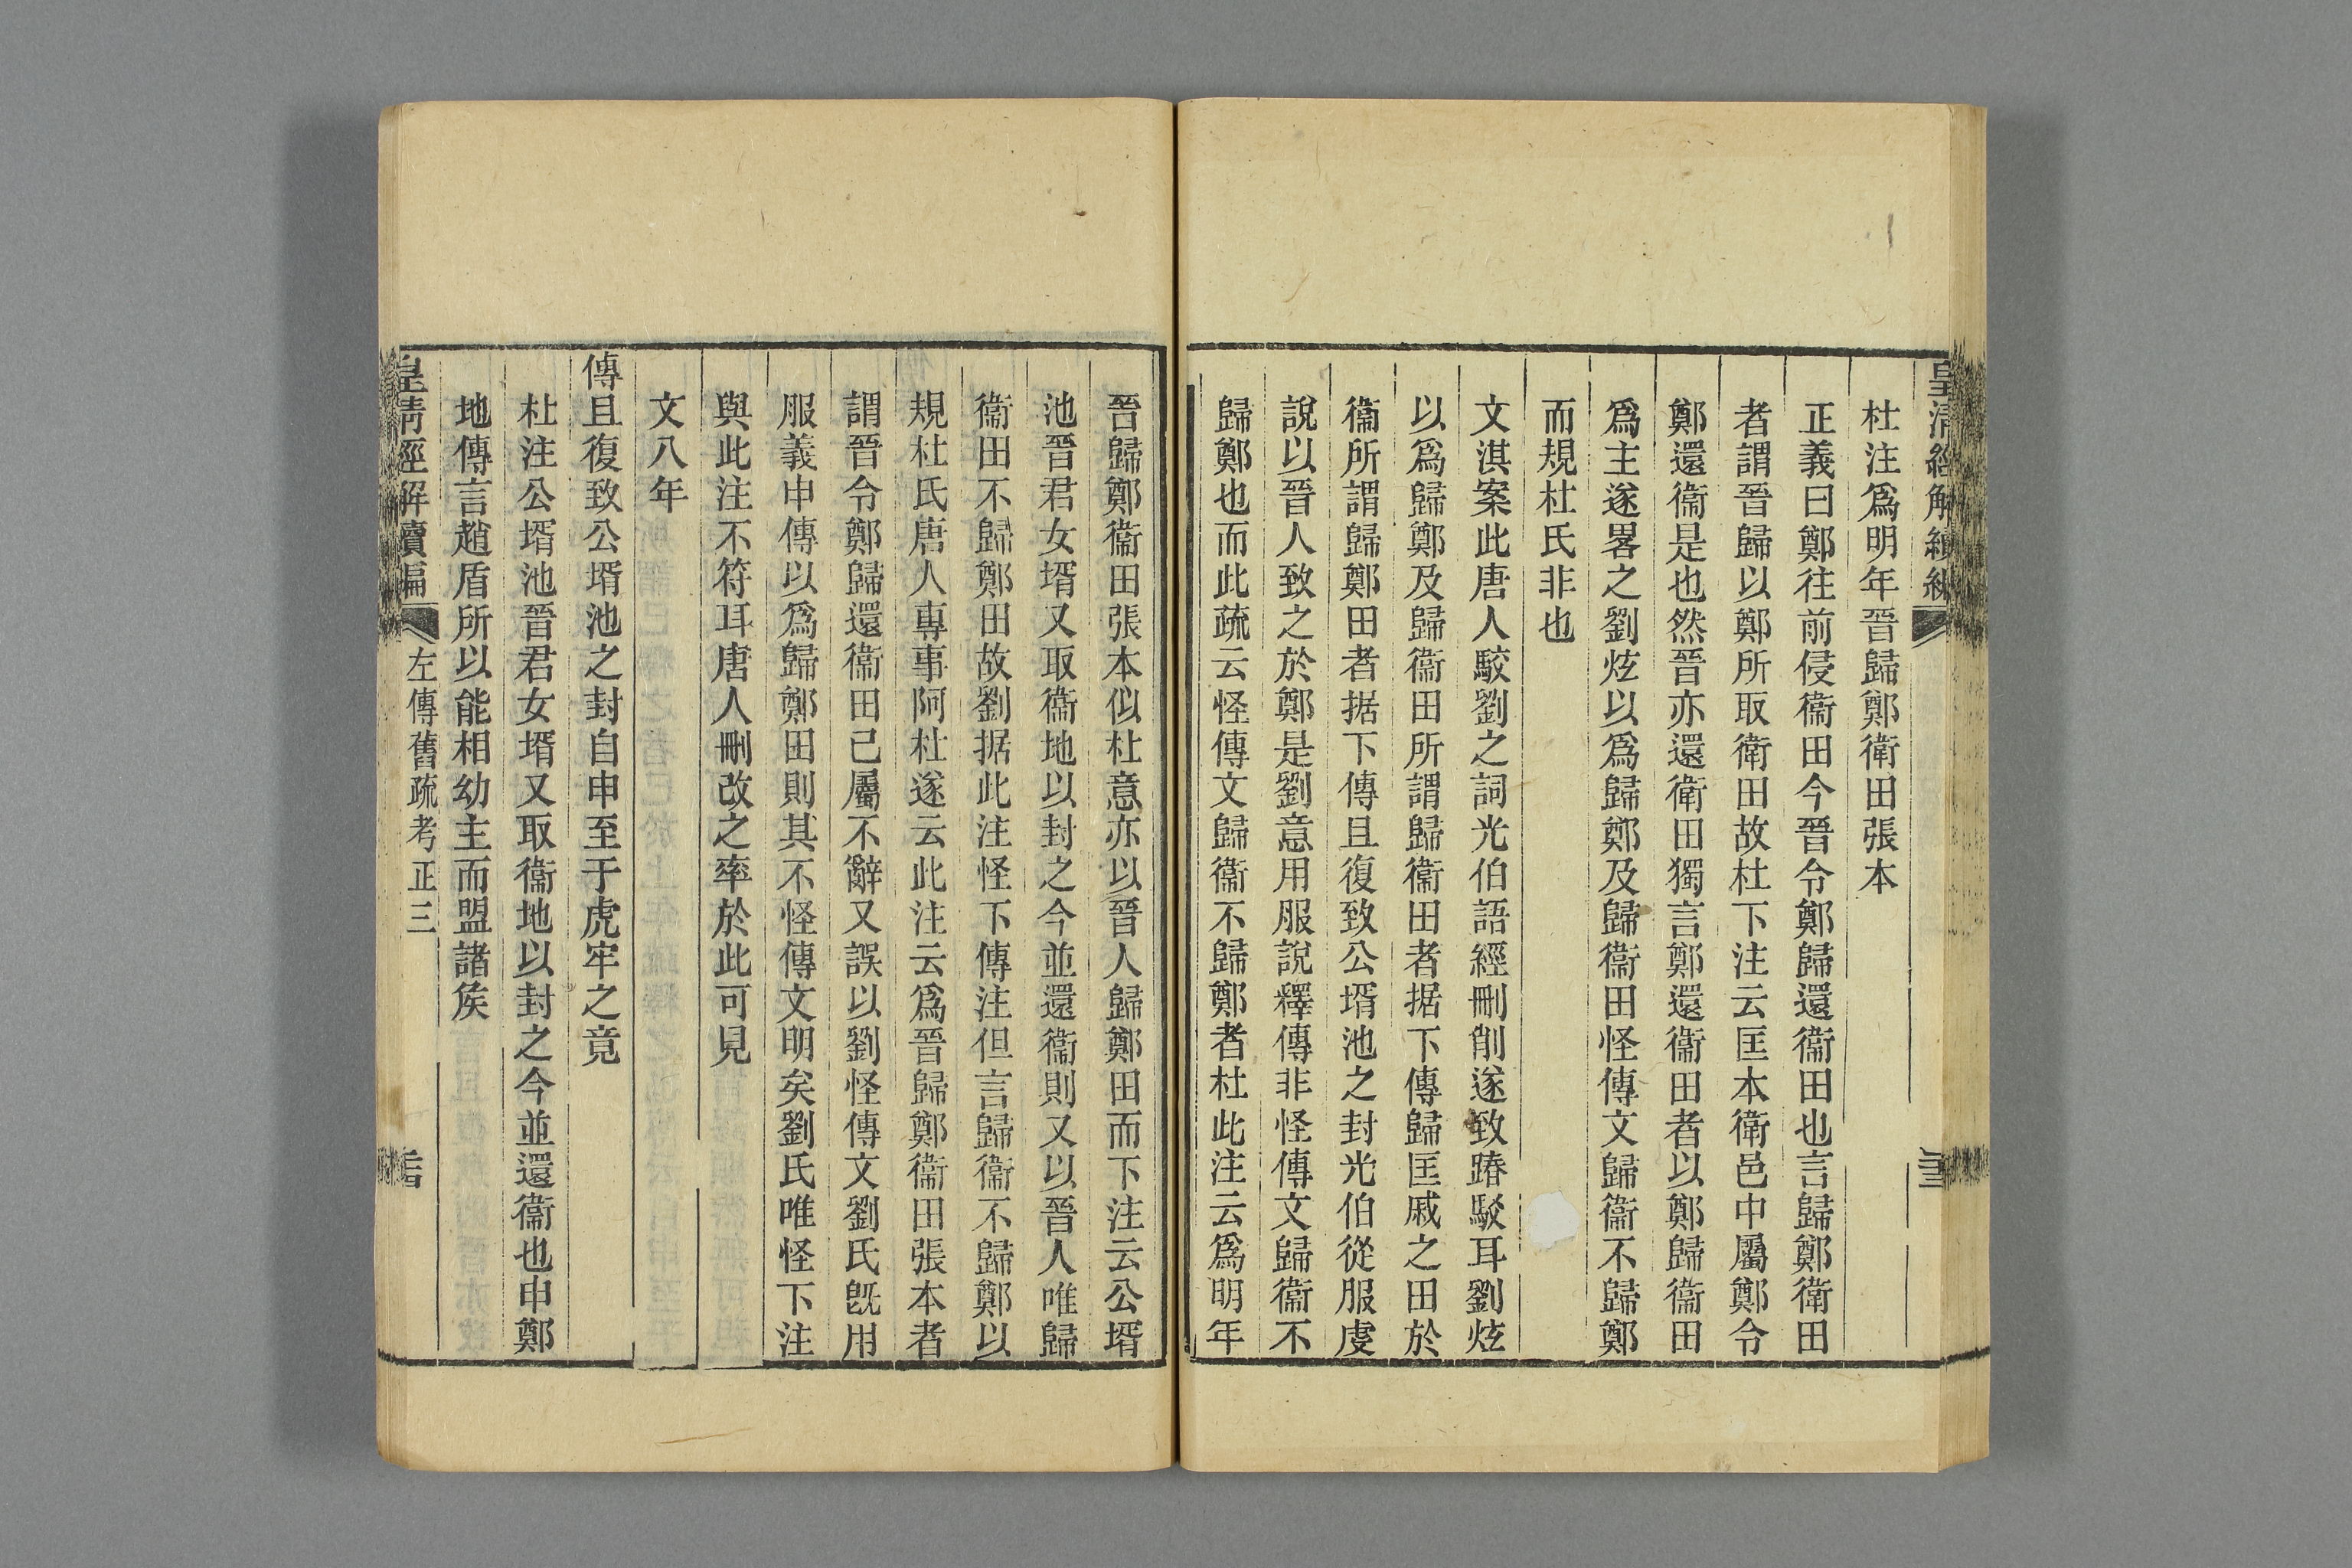 皇清經解續編
杜注爲明年晉歸鄭衛田張本
正義曰鄭往前侵衞田今晉令鄭歸還衞田也言歸鄭衛田
者謂晉歸以鄭所取衛田故杜下注云匡本衛邑中屬鄭今
鄭還衞是也然晉亦還衛田獨言鄭還衞田者以鄭歸衞田
爲主遂畧之劉炫以爲歸鄭及歸衞田怪傳文歸衞不歸鄭
而規杜氏非也
文淇案此唐人駮劉之詞光伯語經刪削遂致踳駁耳劉炫
以爲歸鄭及歸衞田所謂歸衞田者据下傳歸匡戚之田於
衞所謂歸鄭田者据下傳且復致公壻池之封光伯從服虔
說以晉人致之於鄭是劉意用服說釋傳非怪傳文歸衞不
歸鄭也而此疏云怪傳文歸衞不歸鄭者杜此注云爲明年
晉歸鄭衞田張本似杜意亦以晉人歸鄭田而下注云公壻
池晉君女壻又取衞地以封之今並還衞則又以晉人唯歸
衞田不歸鄭田故劉据此注怪下傳注但言歸衞不歸鄭以
規杜氏唐人專事阿杜遂云此注云爲晉歸鄭衞田張本者
謂晉令鄭歸還衞田已屬不辭又誤以劉怪傳文劉氏旣用
服義申傳以爲歸鄭田則其不怪傳文明矣劉氏唯怪下注
與此注不符耳唐人刪改之率於此可見
文八年
傳且復致公壻池之封自申至于虎牢之竟
杜注公壻池晉君女壻又取衞地以封之今並還衞也申鄭
地傳言趙盾所以能相幼主而盟諸矦
皇淸經解續編
左傳舊疏考正三